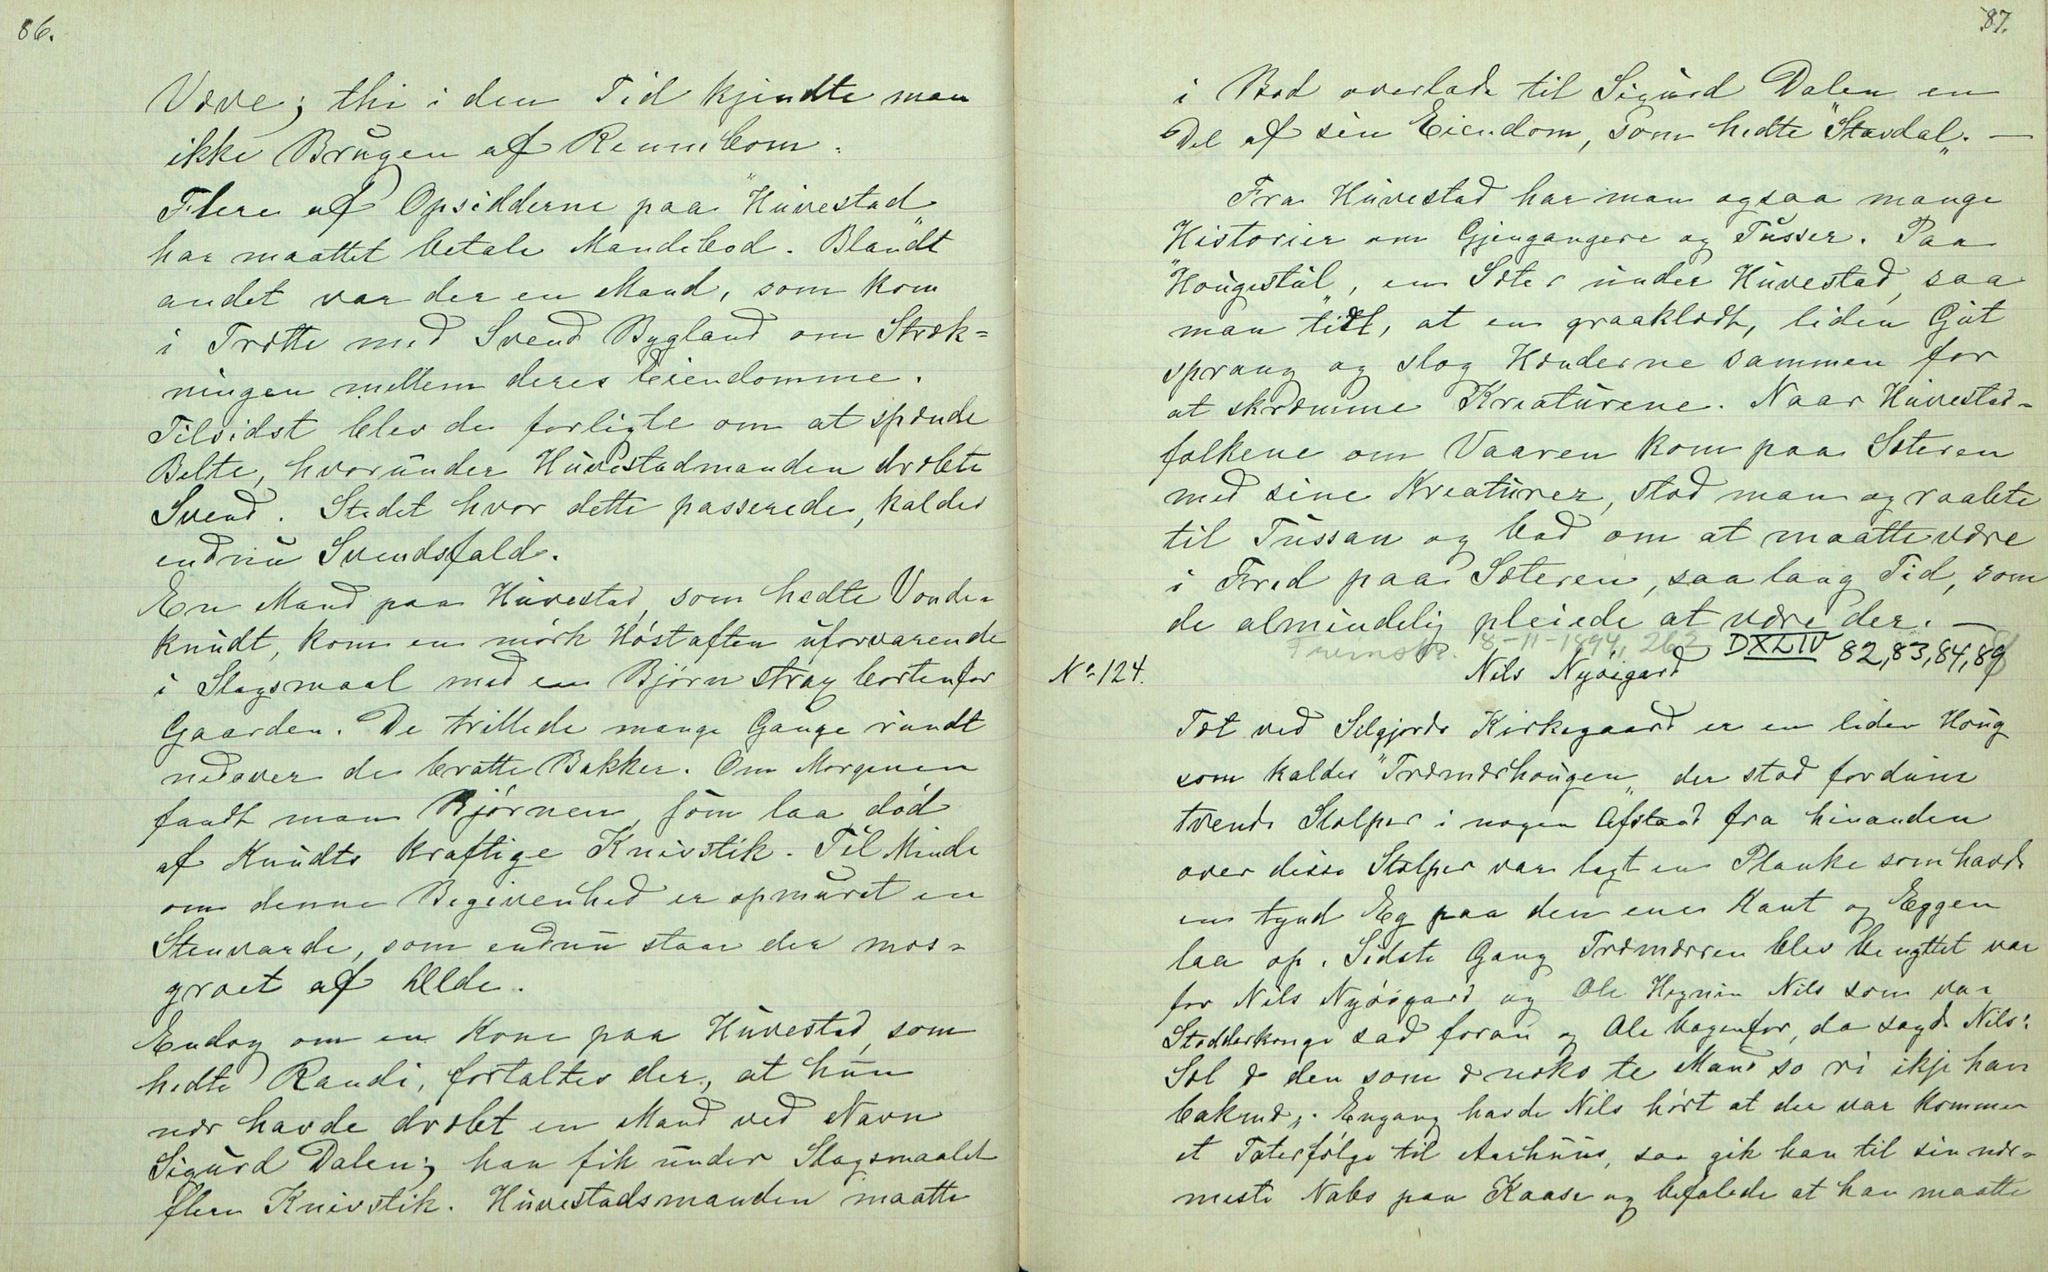 86.
Væve; thi i den Tid kjendte man
ikke Brugen af Rennebom.
Flere af Opsidderne paa "Huvestad"
har maattet betale Mandebod. Blandt
andet var der en Mand, som kom
i Trætte med Svend Bygland om Stræk-
ningen mellem deres Eiendomme.
Tilsidst blev de forligte om at spænde
Belte, hvorunder Huvestadmanden dræbte
Svend. Stedet hvor dette passerede, kaldes
endnu Svendsfald.
En Mand paa Huvestad, som hedte Vonde-
knudt, kom en mørk Høstaften uforvarende
i Slagsmaal med en Bjørn strax bortenfor
Gaarden. De trillede mange Gange rundt
nedover de bratte Bakker. Om Morgenen
fandt man Bjørnen, som laa død
af Knudts kraftige Knivstik. Til Minde
om denne Begivenhed er opmuret en
Stenvarde, som endnu staar der mos-
groet af Ælde.
Endog om en Kone paa Huvestad, som
hedte Randi, fortaltes der, at hun
nær havde dræbt en Mand ved Navn
Sigurd Dalen; han fik under Slagsmaalet
flere Knivstik. Huvestadsmanden maatte
87.
i Bod overlade til Sigurd Dalen en
Del af sin Eiendom, som hedte "Stavdal". —
Fra Huvestad har man ogsaa mange
Historier om Gjengangere og Tusser. Paa
"Hougestul", en Sæter under Huvestad, saa
man tidt, at en graaklædt, liden Gut
sprang og slog Hænderne sammen for
at skræmme Kreaturene. Naar Huvestad-
folkene om Vaaren kom paa Sæteren
med sine Kreaturer, stod man og raabte
til Tussan og bad om at maatte være
i Fred paa Sæteren, saa lang Tid, som
de almindelig pleiede at være der. —
8-11-1894, 263 DXLIV 82,83,84,89
No 124. Nils Nyøigard
Tæt ved Selgjords Kirkegaard er en liden Houg
som kaldes "Træmærhougen" der stod fordum
tvende Stolper i nogen Afstand fra hinanden
over disse Stolper var lagt en Planke som havde
en tynd Eg paa den ene Kant og Eggen
laa op. Sidste Gang Træmærren blev benyttet var
for Nils Nyøigard og Ole Nils som var
Stodderkonge sad foran og Ole bagenfor, da sagde Nils:
Sæl æ den som æ noko te Mand so ri ikje han
bakend;. Engang havde Nils hørt at der var kommen
et Taterfølge til Aarhuus, saa gik han til sin nær-
meste Nabo paa Kaase og befalede at han maatte